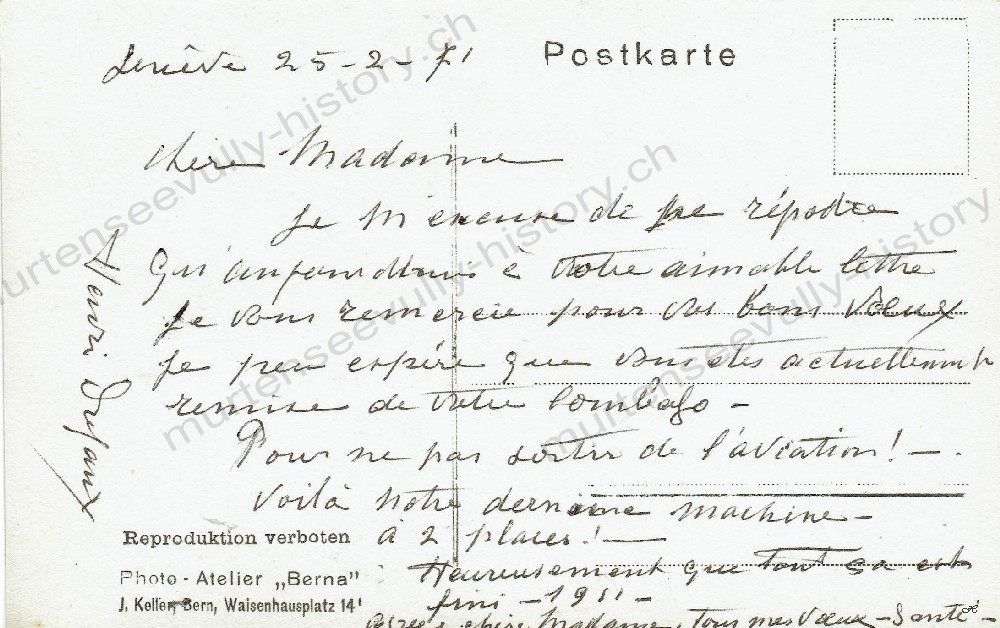 Genève 25-2-71
Postkarte
Chère Madame
Je m'excuse de ne répodre
Qu'aujourd'hui à votre aimable lettre
Je vous remercie pour vos bons vœux
Je peu espére que vous etes actuellement
remise de votre lombago -
Pour ne pas sortir de l'aviation! -
Voilà notre dernière machine -
à 2 places! -
Heureusement que tout ça est
fini - 1911 -
chère Madame, tous mes vœux - Santé -
Henri Dufaux
Reproduktion verboten
Photo - Atelier „Berna"
J. Keller, Bern, Waisenhausplatz 14
murtenseevully-history.ch
murtenseevully-history.ch
murtenseevully-history.ch